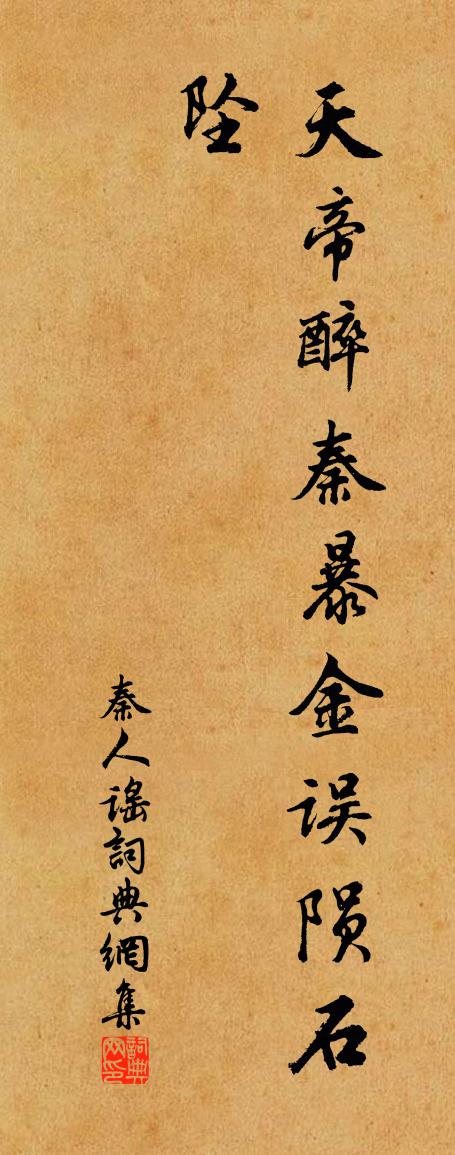 天帝醉秦暴金误陨石
坠
秦人谣詞典網集
詞典网印